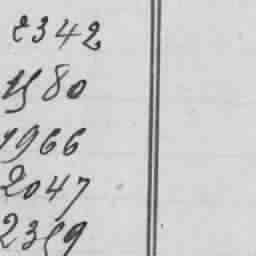 2342
1580
1966
2047
2359